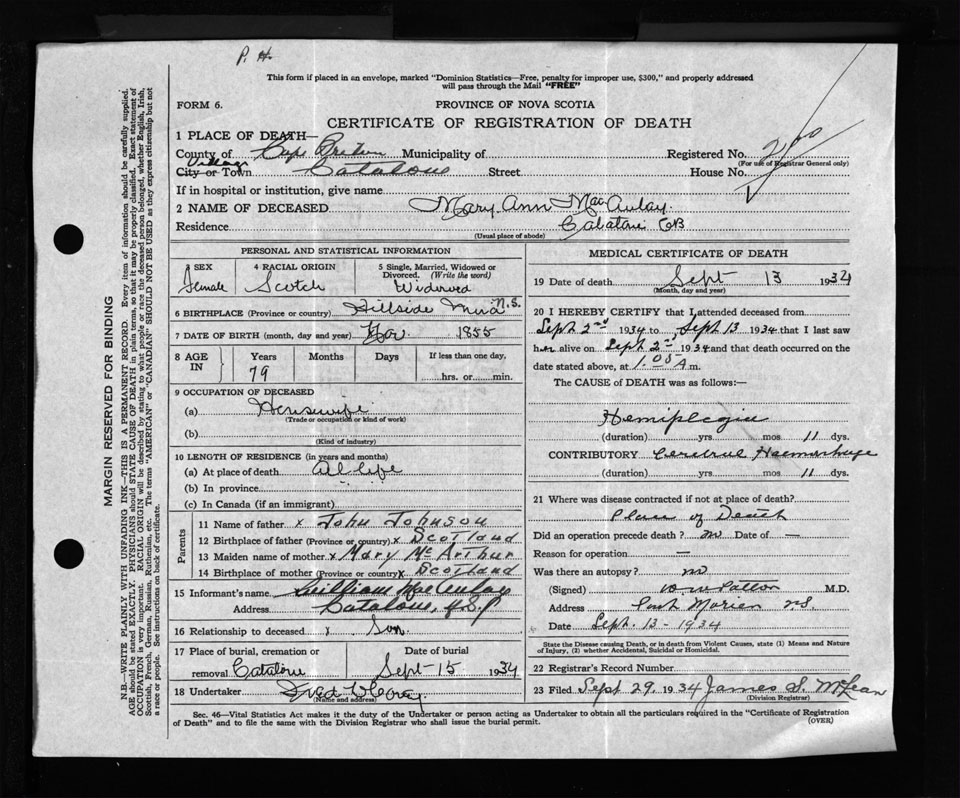 P. H.
This form if placed in an envelope, marked "Dominion Statistics—Free, penalty for improper use, $300," and properly addressed
will pass through the Mail "FREE"
FORM 6.
PROVINCE OF NOVA SCOTIA
CERTIFICATE OF REGISTRATION OF DEATH
1 PLACE OF DEATH—
County of Cape Breton Municipality of Registered No.
(For use of Registrar General only)
Village
City or Town Catalone Street House No.
If in hospital or institution, give name
2 NAME OF DECEASED Mary Ann MacAulay
Residence Catalone CB
(Usual place of abode)
PERSONAL AND STATISTICAL INFORMATION
3 SEX
Female
4 RACIAL ORIGIN
Scotch
5 Single, Married, Widowed or
Divorced. (Write the word)
Widowed
6 BIRTHPLACE (Province or country) Hillside Mira N.S.
7 DATE OF BIRTH (month, day and year) 1855
8 AGE
IN
Years
79
Months
Days
If less than one day,
hrs. or min.
9 OCCUPATION OF DECEASED
(a) Housewife
(Trade or occupation or kind of work)
(b)
(Kind of industry)
10 LENGTH OF RESIDENCE (in years and months)
(a) At place of death All life
(b) In province
(c) In Canada (if an immigrant)
Parents
11 Name of father x John Johnson
12 Birthplace of father (Province or country) x Scotland
13 Maiden name of mother x Mary McArthur
14 Birthplace of mother (Province or country) x Scotland
15 Informant's name William MacAulay
Address Catalone,
16 Relationship to deceased x Son
17 Place of burial, cremation or Date of burial
removal Catalone Sept 15 1934
18 Undertaker Fred
(Name and address)
MEDICAL CERTIFICATE OF DEATH
19 Date of death Sept 13 1934
(Month, day and year)
20 I HEREBY CERTIFY that I attended deceased from
Sept 2nd 1934 to Sept 13 1934 that I last saw
her alive on Sept 2nd 1934 and that death occurred on the
date stated above, at 1.05 A m.
The CAUSE of DEATH was as follows:—
Hemiplegia
(duration) yrs mos 11 dys.
CONTRIBUTORY Cerebral Haemorrhage
(duration) yrs. mos 11 dys.
21 Where was disease contracted if not at place of death?
Place of Death
Did an operation precede death? no Date of —
Reason for operation —
Was there an autopsy? no
(Signed) M.D.
Address Port Morien NS
Date Sept. 13 - 1934
State the Disease causing Death, or in death from Violent Causes, state (1) Means and Nature
of Injury, (2) whether Accidental, Suicidal or Homicidal.
22 Registrar's Record Number
23 Filed Sept 29, 1934 James S. McLean
(Division Registrar)
Sec. 46—Vital Statistics Act makes it the duty of the Undertaker or person acting as Undertaker to obtain all the particulars required in the "Certificate of Registration
of Death" and to file the same with the Division Registrar who shall issue the burial permit.
(OVER)
MARGIN RESERVED FOR BINDING
N.B.—WRITE PLAINLY WITH UNFADING INK—THIS IS A PERMANENT RECORD. Every item of information should be carefully supplied.
AGE should be stated EXACTLY. PHYSICIANS should STATE CAUSE OF DEATH in plain terms, so that it may be properly classified. Exact statement of
OCCUPATION is very important. RACIAL ORIGIN will be described by stating to what people or race the deceased person belonged, whether English, Irish,
Scottish, French, German, Russian, Ruthenian, etc. The terms "AMERICAN" or "CANADIAN" SHOULD NOT BE USED as they express citizenship but not
a race or people. See instructions on back of certificate.